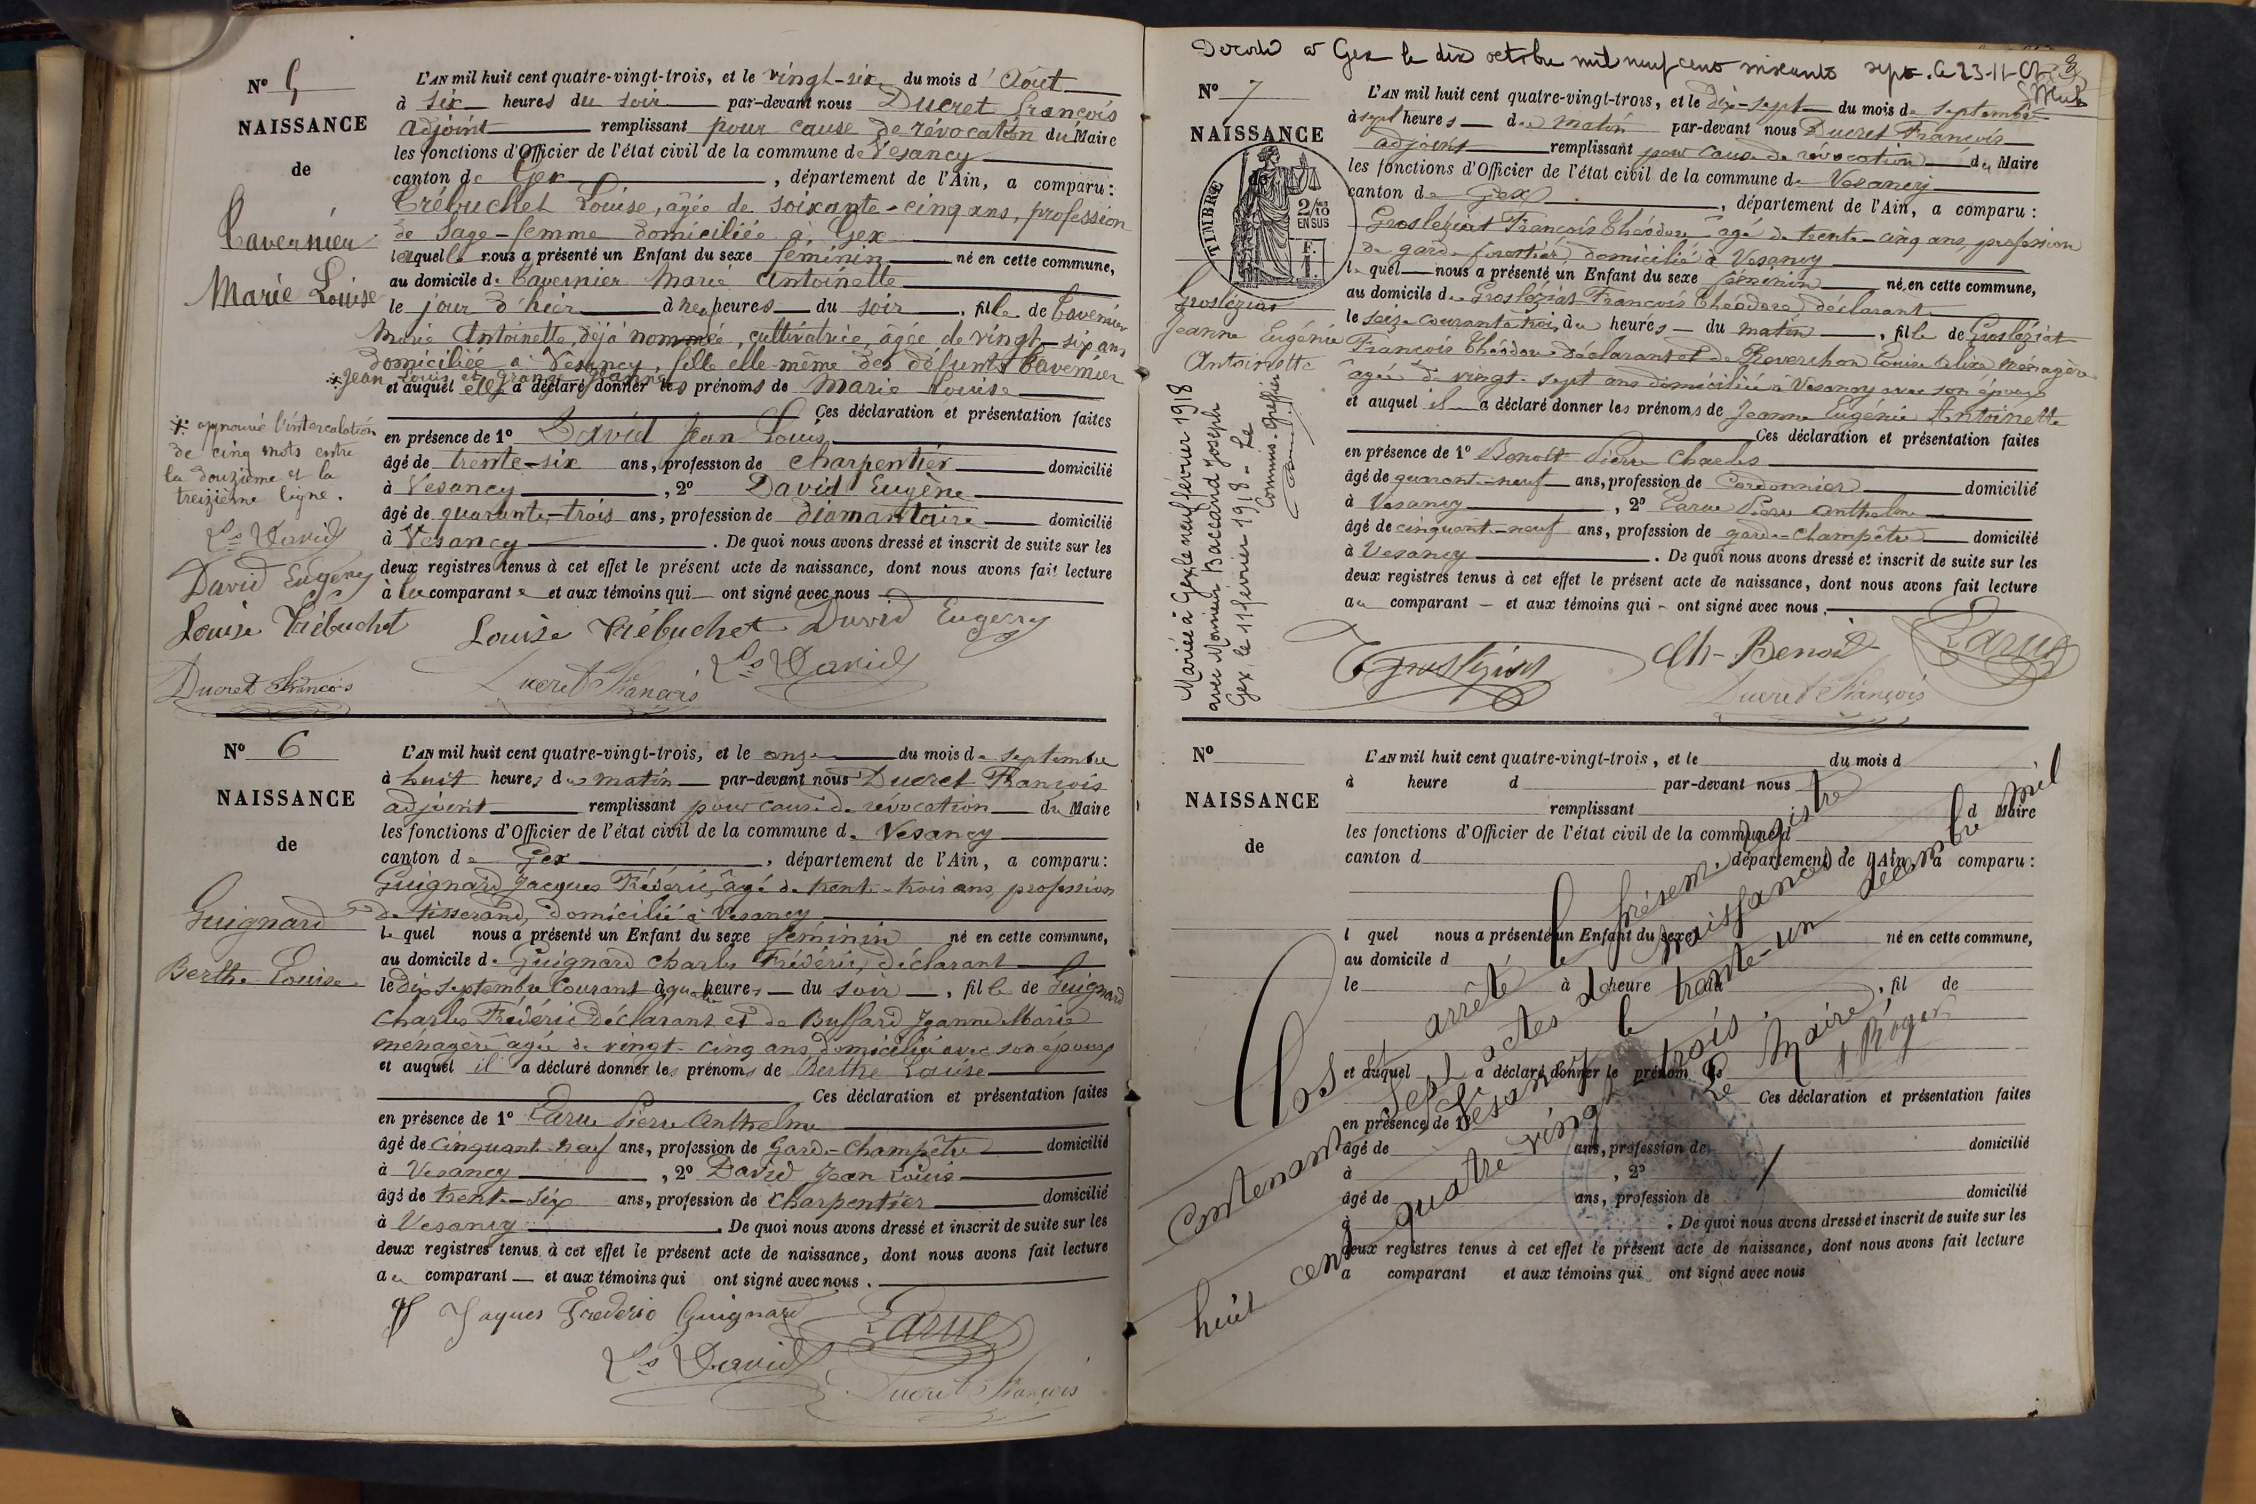 N° 5
NAISSANCE
de
Tavernier
Marie Louise
L'AN mil huit cent quatre-vingt-trois, et le vingt-six du mois d'Août
à six heures du soir par-devant nous Ducret François
adjoint remplissant pour cause de révocation du Maire
les fonctions d'Officier de l'état civil de la commune de Vesancy
canton de Gex, département de l'Ain, a comparu:
Trébuchet Louise, agée de soixante-cinq ans, profession
de sage-femme domiciliée à Gex
laquelle nous a présenté un Enfant du sexe féminin né en cette commune,
au domicile de Tavernier Marie Antoinette
le jour d'hier à neuf heures du soir, fille de Tavernier
Marie Antoinette, déjà nommée, cultivatrice, âgée de vingt-six ans
domiciliée à Vesancy, fille elle-même des défunts Tavernier
* Jean Louis et Grange Jeanne
et auquel elle a déclaré donner les prénoms de Marie Louise
Ces déclaration et présentation faites
en présence de 1° David Jean Louis
âgé de trente-six ans, profession de charpentier domicilié
à Vesancy, 2° David Eugène
âgé de quarante-trois ans, profession de diamantaire domicilié
à Vesancy. De quoi nous avons dressé et inscrit de suite sur les
deux registres tenus à cet effet le présent acte de naissance, dont nous avons fait lecture
à la comparante et aux témoins qui ont signé avec nous
* approuvé l'intercalation
de cinq mots entre
la douzième et la
treizième ligne.
Ls David
David Eugène
Louise Trébuchet
Ducret François
Louise Trébuchet David Eugène
Ducret François Ls David
N° 6
NAISSANCE
de
Guignard
Berthe Louise
L'AN mil huit cent quatre-vingt-trois, et le onze du mois de septembre
à huit heures du matin par-devant nous Ducret François
adjoint remplissant pour cause de révocation du Maire
les fonctions d'Officier de l'état civil de la commune de Vesancy
canton de Gex, département de l'Ain, a comparu:
Guignard Jacques Frédéric, âgé de trente-trois ans, profession
de tisserand, domicilié à Vesancy
lequel nous a présenté un Enfant du sexe féminin né en cette commune,
au domicile de Guignard Charles Frédéric, déclarant
le dix septembre courant à quatre heures du soir, fille de Guignard
Charles Frédéric déclarant et de Buffard Jeanne Marie
ménagère agée de vingt-cinq ans, domiciliée avec son époux
et auquel il a déclaré donner les prénoms de Berthe Louise
Ces déclaration et présentation faites
en présence de 1° Larue Pierre Anthelme
âgé de cinquante-neuf ans, profession de Garde-Champêtre domicilié
à Vesancy, 2° David Jean Louis
âgé de trente-six ans, profession de charpentier domicilié
à Vesancy. De quoi nous avons dressé et inscrit de suite sur les
deux registres tenus à cet effet le présent acte de naissance, dont nous avons fait lecture
au comparant et aux témoins qui ont signé avec nous.
Jaques Frederic Guignard Larue
Ls David
Ducret François
Décédée à Gex le dix octobre mil neuf cent soixante sept. Le 23-11-
N° 7
NAISSANCE
de
TIMBRE
2/10 EN SUS
F. 1.
Grosléziat
Jeanne Eugénie
Antoinette
Mariée à Gex le neuf février 1918
avec Monsieur Baccard Joseph
Gex, le 11 février 1918 - Le
Commis-Greffier
L'AN mil huit cent quatre-vingt-trois, et le dix-sept du mois de septembre
à sept heures du matin par-devant nous Ducret François
adjoint remplissant pour cause de révocation du Maire
les fonctions d'Officier de l'état civil de la commune de Vesancy
canton de Gex, département de l'Ain, a comparu:
Grosléziat François Théodore âgé de trente-cinq ans, profession
de garde forestier, domicilié à Vesancy
lequel nous a présenté un Enfant du sexe féminin né en cette commune,
au domicile de Grosléziat François Théodore, déclarant
le seize courant à trois heures du matin, fille de Grosléziat
François Théodore déclarant et de Reverchon Louise Célixa ménagère
agée de vingt-sept ans domiciliée à Vesancy avec son époux
et auquel il a déclaré donner les prénoms de Jeanne Eugénie Antoinette
Ces déclaration et présentation faites
en présence de 1° Benoit Pierre Charles
âgé de quarante-neuf ans, profession de Cordonnier domicilié
à Vesancy, 2° Larue Pierre Anthelme
âgé de cinquante-neuf ans, profession de garde-champêtre domicilié
à Vesancy. De quoi nous avons dressé et inscrit de suite sur les
deux registres tenus à cet effet le présent acte de naissance, dont nous avons fait lecture
au comparant et aux témoins qui ont signé avec nous.
Grosléziat Ch-Benoit Larue
Ducret François
N°
NAISSANCE
de
L'AN mil huit cent quatre-vingt-trois, et le du mois d
à heure d par-devant nous
remplissant d Maire
les fonctions d'Officier de l'état civil de la commune d
canton d, département de l'Ain, a comparu:
l quel nous a présenté un Enfant du sexe né en cette commune,
au domicile d
le à heure du, fil de
et auquel a déclaré donner le prénom de
Ces déclaration et présentation faites
en présence de 1°
âgé de ans, profession de domicilié
à, 2°
âgé de ans, profession de domicilié
à. De quoi nous avons dressé et inscrit de suite sur les
deux registres tenus à cet effet le présent acte de naissance, dont nous avons fait lecture
a comparant et aux témoins qui ont signé avec nous
Clos et arrêté le présent registre
Contenant sept actes de naissances
à Vesancy le trente-un décembre mil
huit cent quatre-vingt trois.
Le Maire,
Roger